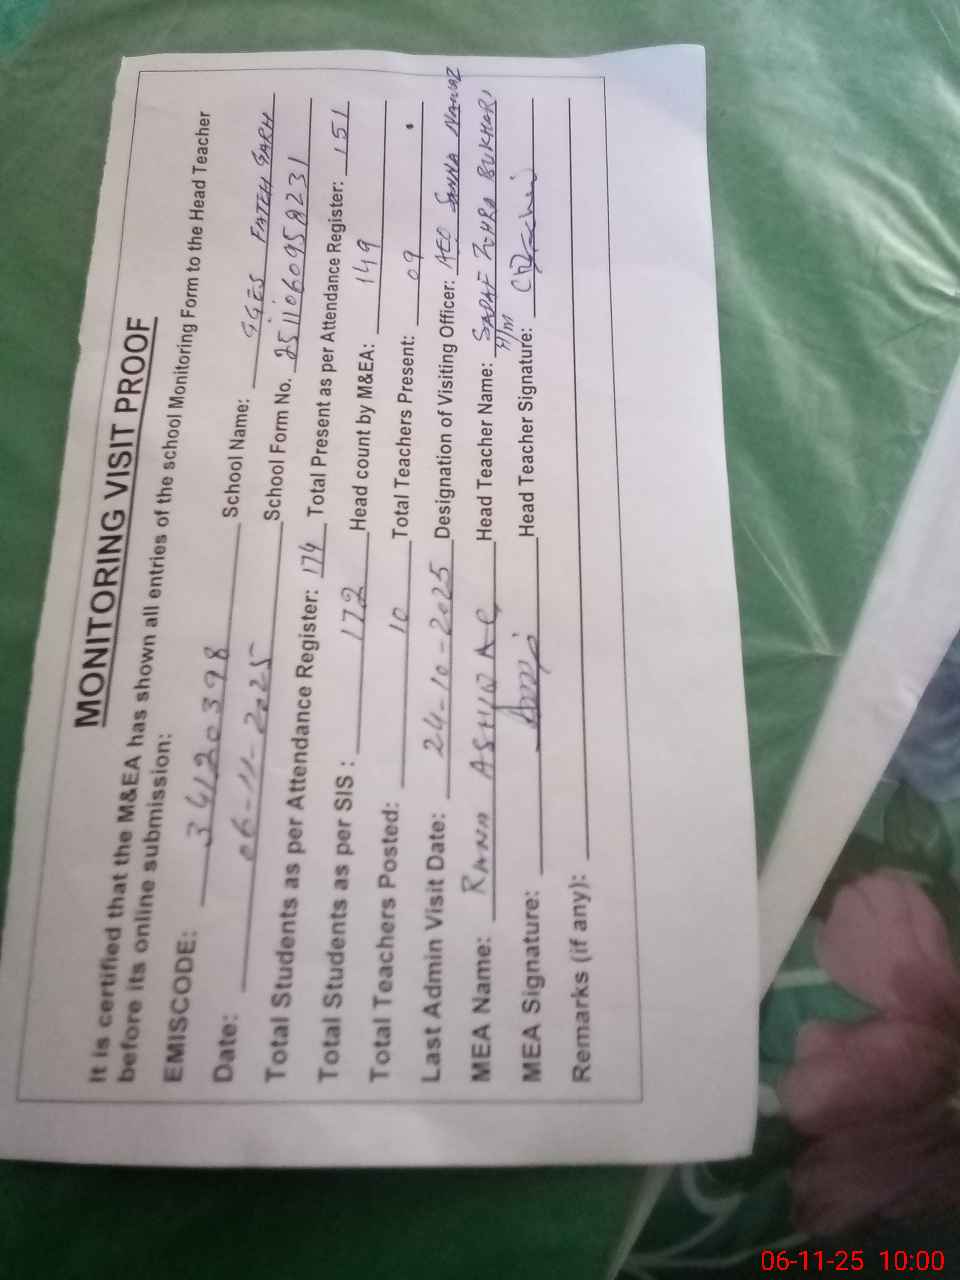 MONITORING VISIT PROOF
It is certified that the M&EA has shown all entries of the school Monitoring Form to the Head Teacher
before its online submission:
EMISCODE: 34120398 School Name: GGES FATEH GARH
Date: 06-11-2025 School Form No. 251106095A231
Total Students as per Attendance Register: 174 Total Present as per Attendance Register: 151
Total Students as per SIS : 172 Head count by M&EA: 149
Total Teachers Posted: 10 Total Teachers Present: 09
Last Admin Visit Date: 24-10-2025 Designation of Visiting Officer: AEO SANNA NAWAZ
MEA Name: RANA ASHIQ Head Teacher Name: SADAF ZOHRA BUKHARI
H/M
MEA Signature: Head Teacher Signature:
Remarks (if any):
06-11-25 10:00